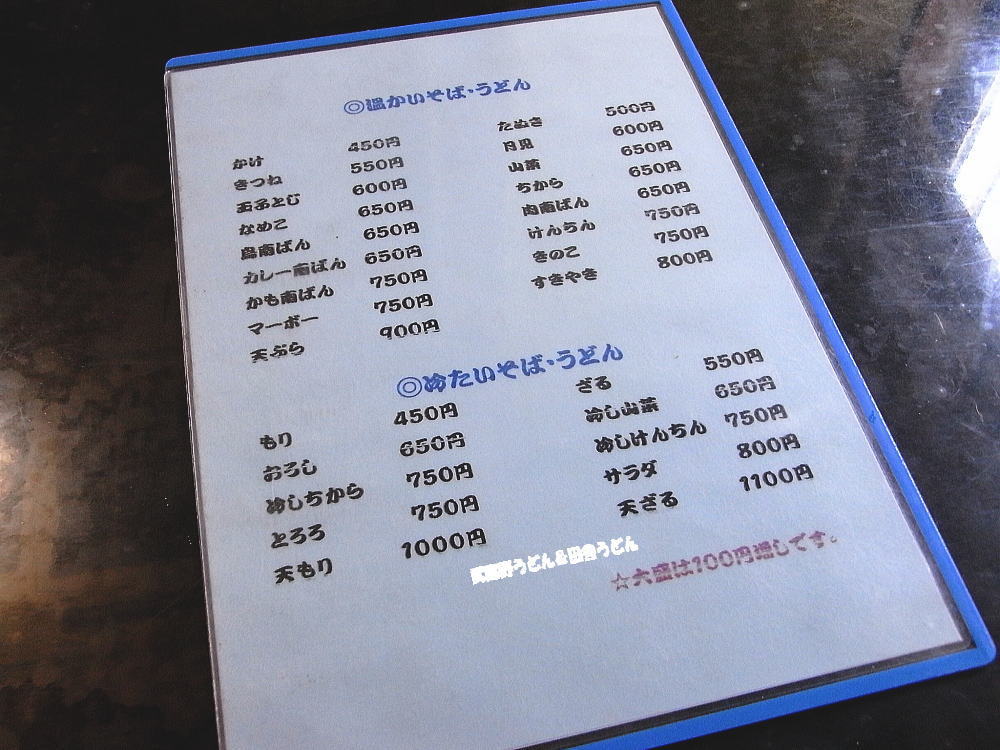 ◎温かいそば・うどん
かけ 450円 たぬき 500円
きつね 550円 月見 600円
玉子とじ 600円 山菜 650円
なめこ 650円 ちから 650円
鳥南ばん 650円 肉南ばん 650円
カレー南ばん 650円 けんちん 750円
かも南ばん 750円 きのこ 750円
マーボー 750円 すきやき 800円
天ぷら 900円
◎冷たいそば・うどん
もり 450円 ざる 550円
おろし 650円 冷し山菜 650円
冷しちから 750円 冷しけんちん 750円
とろろ 750円 サラダ 800円
天もり 1000円 天ざる 1100円
武蔵野うどん&田舎うどん
☆大盛は100円増しです。